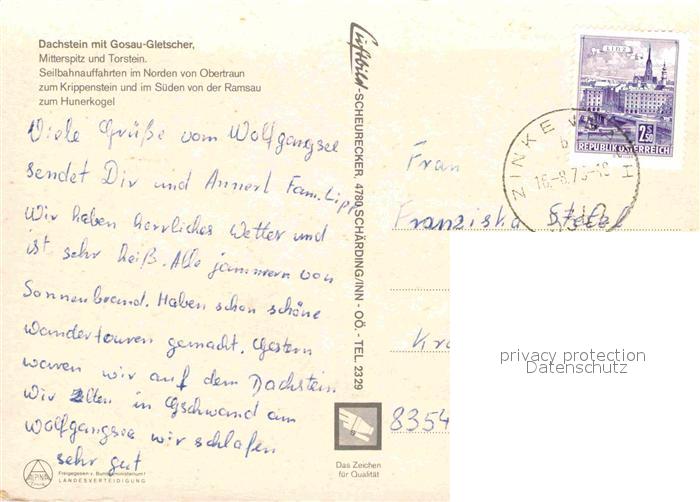 Dachstein mit Gosau-Gletscher,
Mitterspitz und Torstein.
Seilbahnauffahrten im Norden von Obertraun
zum Krippenstein und im Süden von der Ramsau
zum Hunerkogel
Viele Grüße vom Wolfgangsee
sendet Dir und Annerl Fam. Lipp
Wir haben herrliches Wetter und
ist sehr heiß. Alle jammern von
Sonnenbrand. Haben schon schöne
wandertouren gemacht. Gestern
waren wir auf dem Dachstein
Wir zelten in Gschwand am
Wolfgangsee wir schlafen
sehr gut
ALPINA
Druck
Freigegeben v. Bundesministerium f.
LANDESVERTEIDIGUNG
Luftbild-SCHEURECKER, 4780 SCHÄRDING/INN - OÖ. - TEL. 2329
Das Zeichen
für Qualität
LINZ
2 S 50
REPUBLIK ÖSTERREICH
ZINKE
16.-8.7
Frau
Franziska
8354
privacy protection
Datenschutz